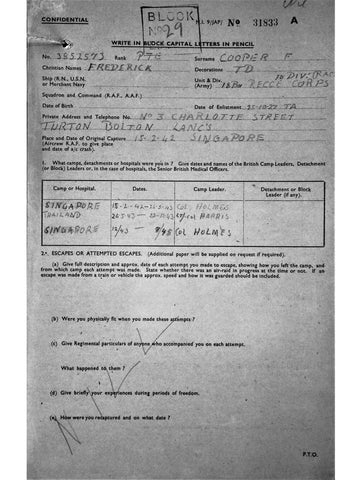 CONFIDENTIAL
BLOCK
No 29
M.I. 9/(JAP) No 31833 A
WRITE IN BLOCK CAPITAL LETTERS IN PENCIL
No. 3852573 Rank PTE Surname COOPER F
Christian Names FREDERICK Decorations TD
Ship (R.N., U.S.N. or Merchant Navy) Unit and Div. (Army) 18 DIV. RECCE CORPS
Squadron and Command (R.A.F., A.A.F.)
Date of Birth Date of Enlistment TA
Private Address and Telephone No. No 3 CHARLOTTE STREET
TURTON BOLTON LANCS
Place and Date of Original Capture 15-2-42 SINGAPORE
(Aircrew R.A.F. to give place
and date of a/c crash).
1. What camps, detachments or hospitals were you in? Give dates and names of the British Camp Leaders, Detachment
(or Block) Leaders or, in the case of hospitals, the Senior British Medical Officers.
Camp or Hospital. Dates. Camp Leader. Detachment or Block Leader (if any).
SINGAPORE 15-2-42- COL HOLMES
THAILAND HARRIS
SINGAPORE 12/43 - 9/45 COL HOLMES
2. ESCAPES OR ATTEMPTED ESCAPES. (Additional paper will be supplied on request if required).
(a) Give full description and approx. date of each attempt you made to escape, showing how you left the camp, and
from which camp each attempt was made. State whether there was an air-raid in progress at the time or not. If an
escape was made from a train or vehicle the approx. speed and how it was guarded should be included.
(b) Were you physically fit when you made these attempts?
(c) Give Regimental particulars of anyone who accompanied you on each attempt.
What happened to them?
(d) Give briefly your experiences during periods of freedom.
(e) How were you recaptured and on what date?
NIL
P.T.O.